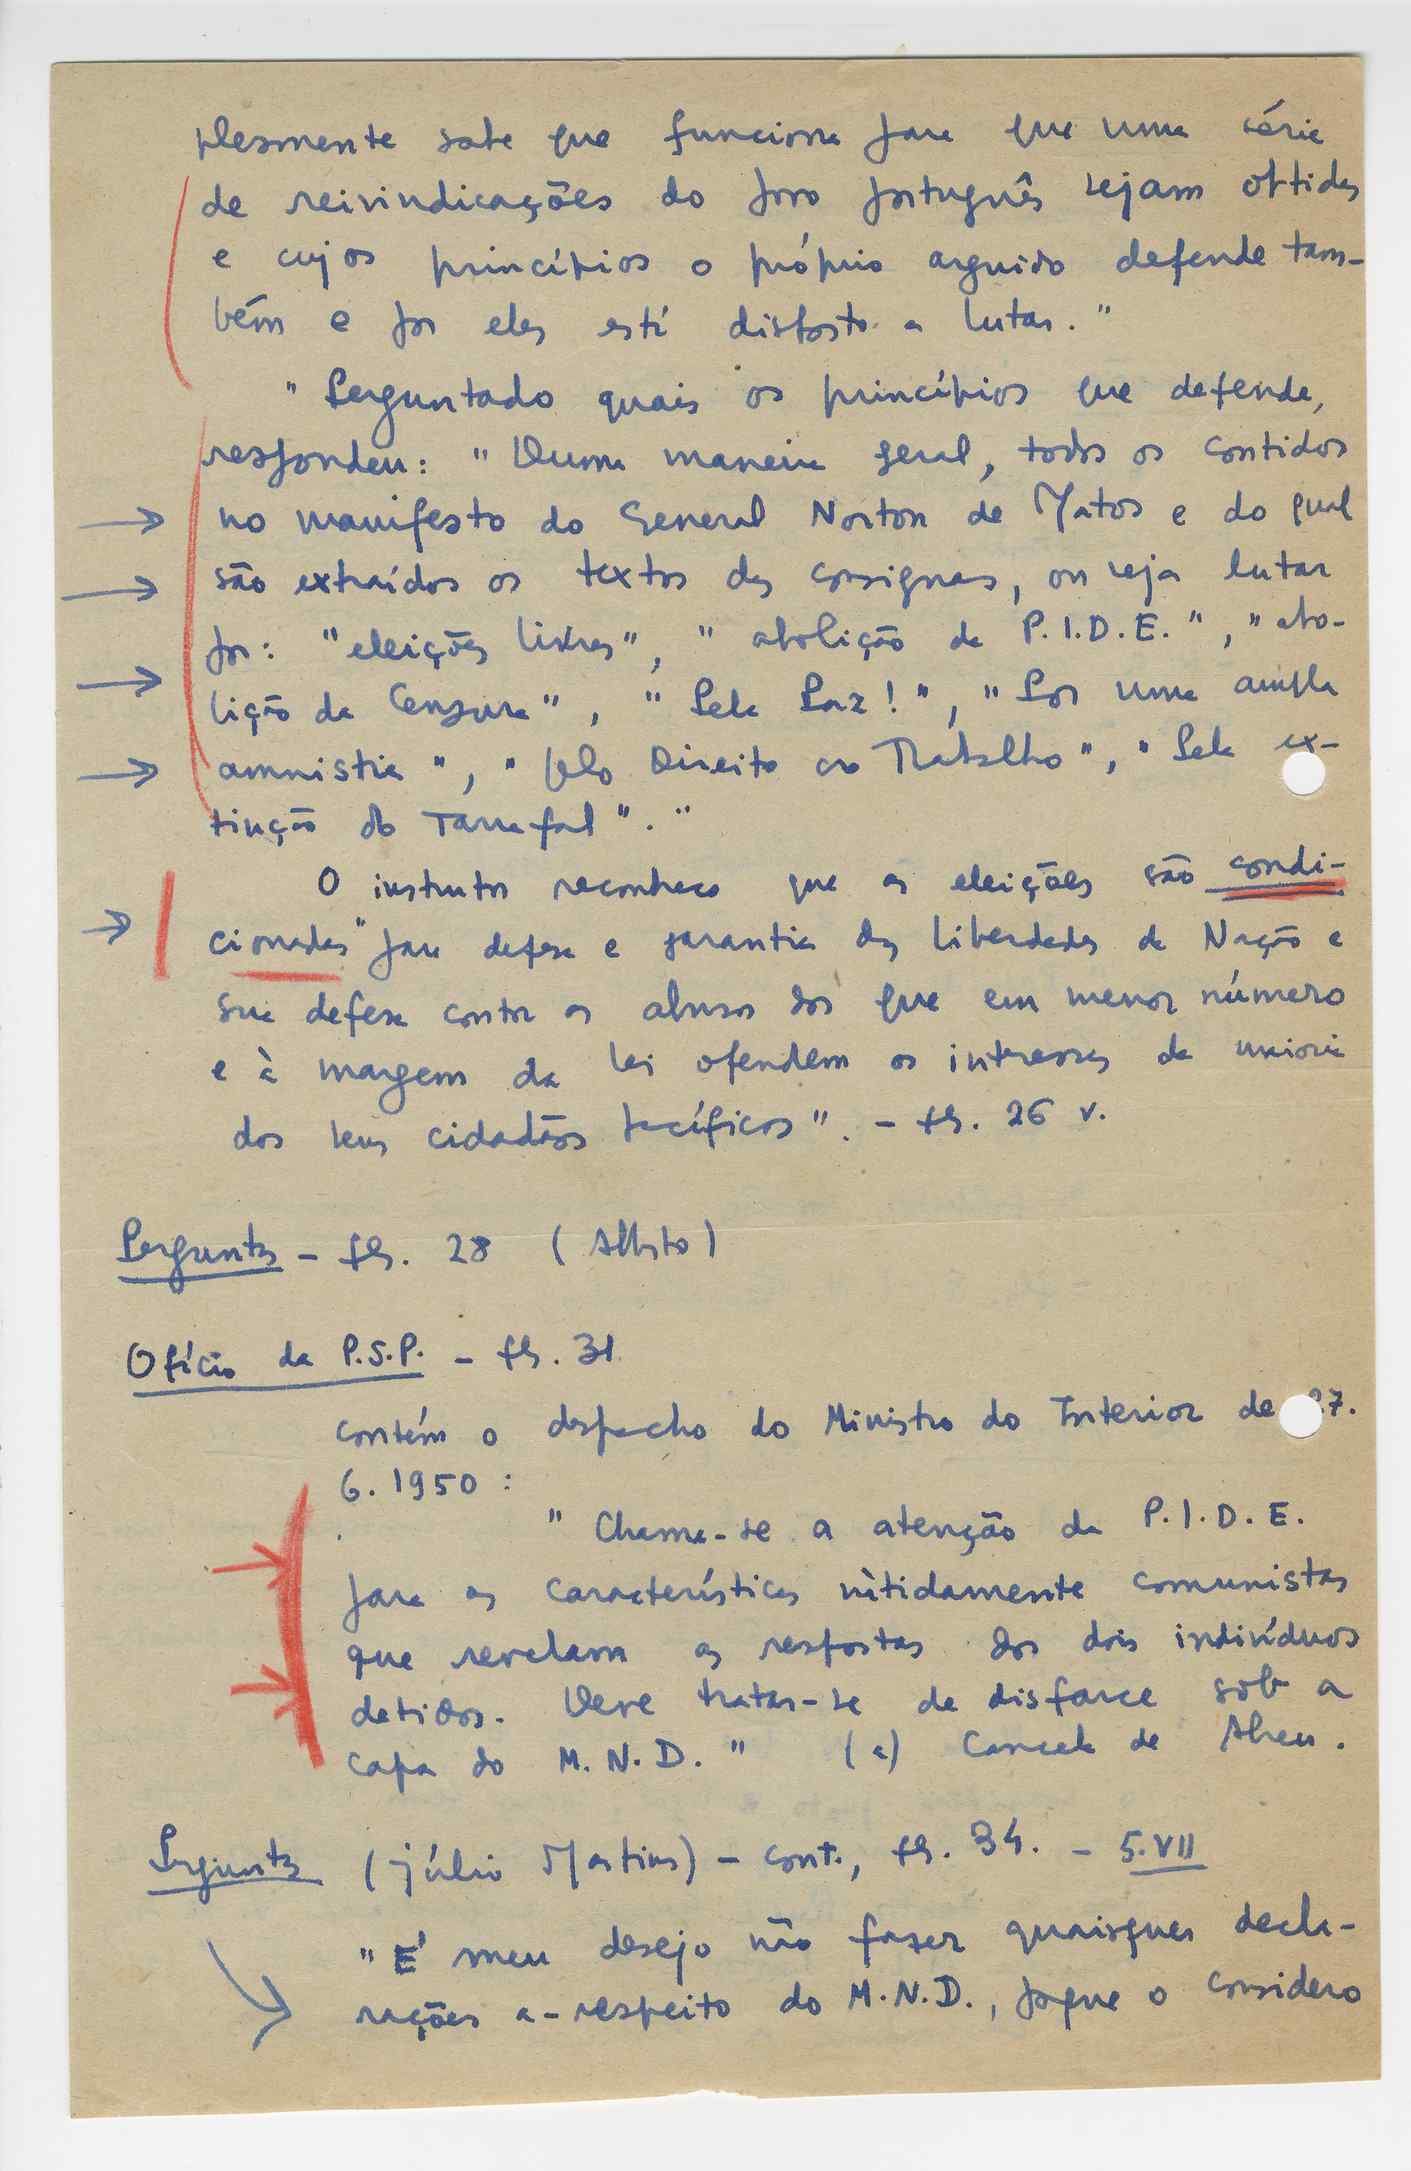 plesmente sabe que funciona para que uma série
de reivindicações do povo português sejam obtidas
e cujos princípios o próprio arguido defende tam-
bém e por eles está disposto a lutar."
"Perguntado quais os princípios que defende,
respondeu: "Duma maneira geral, todos os contidos
no manifesto do General Norton de Matos e do qual
são extraídos os textos das consignas, ou seja lutar
por: "eleições livres", "abolição da P.I.D.E.", "abo-
lição da Censura", "Pela Paz!", "Por uma ampla
amnistia", "pelo Direito ao Trabalho", "Pela ex-
tinção do Tarrafal"."
O instrutor reconhece que as eleições são condi-
cionadas "para defesa e garantia das liberdades da Nação e
sua defesa contra os abusos dos que em menor número
e à margem da lei ofendem os interesses da maioria
dos seus cidadãos pacíficos". - fls. 26 v.
Perguntas - fls. 28 (Alberto)
Ofício da P.S.P. - fls. 31
contém o despacho do Ministro do Interior de 27.
6.1950:
"Chama-se a atenção da P.I.D.E.
para as características nìtidamente comunistas
que revelam as respostas dos dois indivíduos
detidos. Deve tratar-se de disfarce sob a
capa do M.N.D." (a) Cancela de Abreu.
Perguntas (Júlio Martins) - cont., fls. 34. - 5.VII
"É meu desejo não fazer quaisquer decla-
rações a-respeito do M.N.D., porque o considero